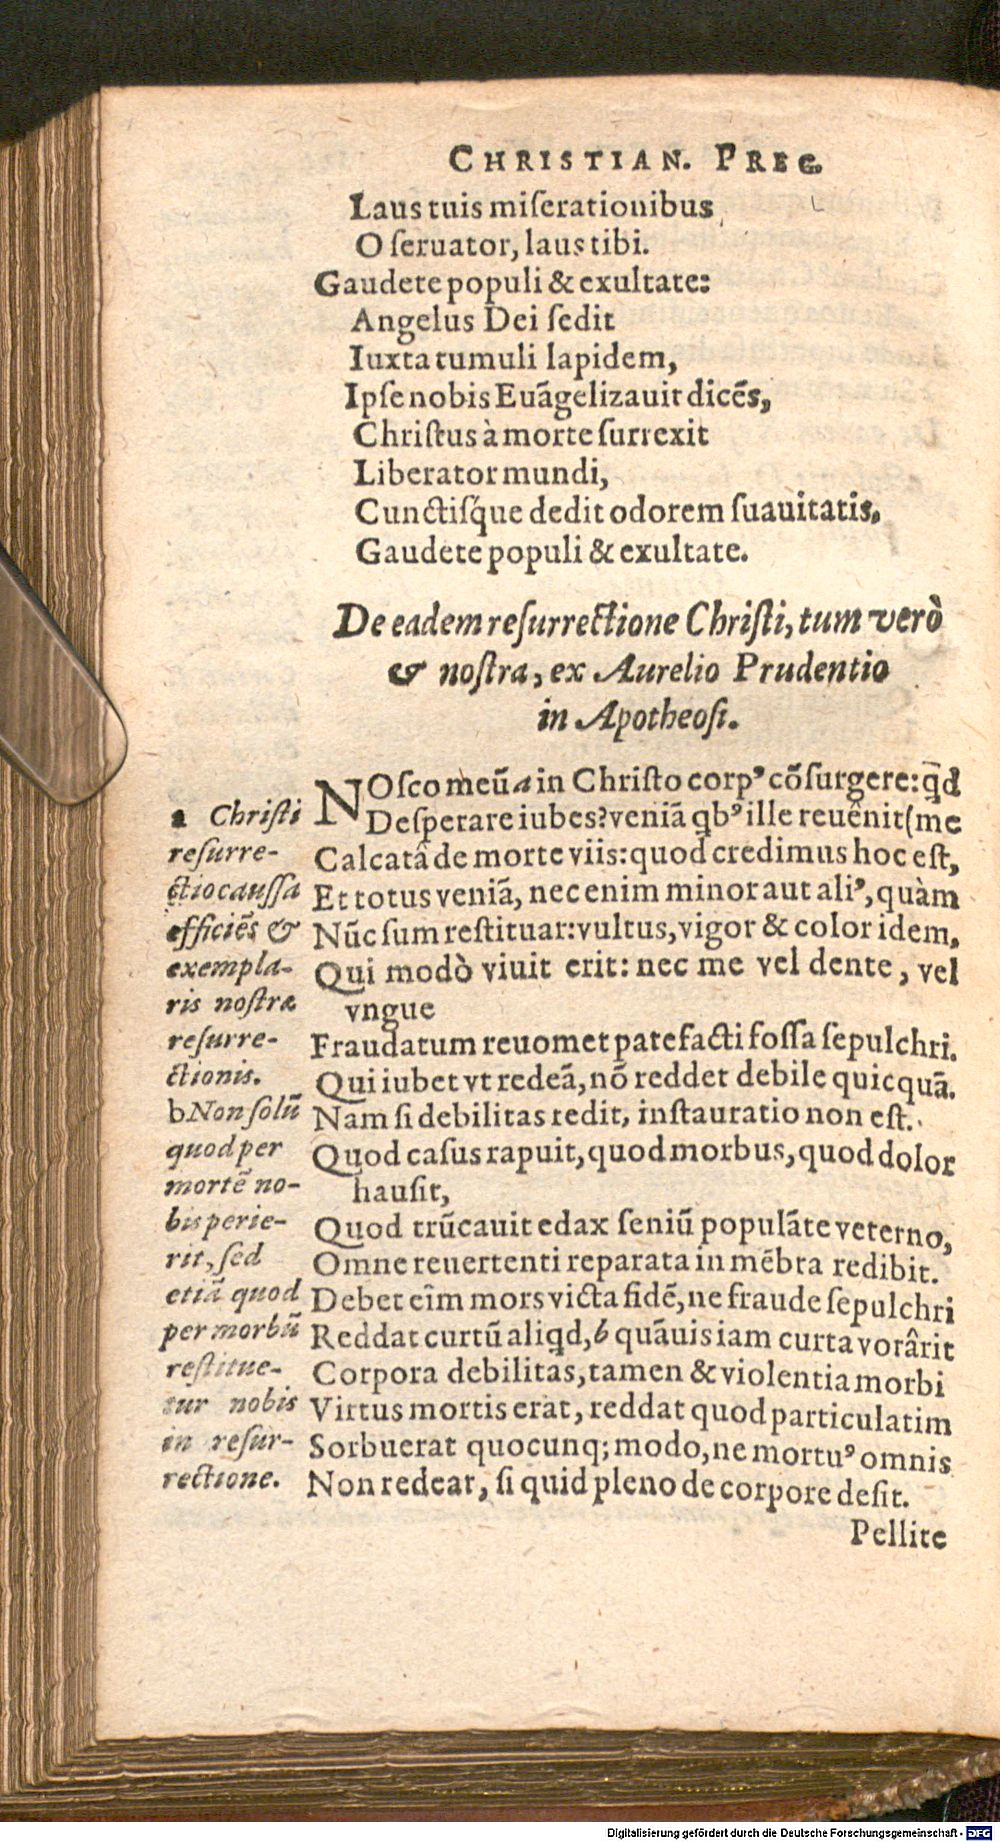 CHRISTIAN. PREC.
Laus tuis miſerationibus
O ſeruator, laus tibi.
Gaudete populi & exultate:
Angelus Dei ſedit
Iuxta tumuli lapidem,
Ipſe nobis Euãgelizauit dicẽs,
Chriſtus à morte ſurrexit
Liberator mundi,
Cunctiſq́ue dedit odorem ſuauitatis.
Gaudete populi & exultate.
De eadem reſurrectione Chriſti, tum verò
& noſtra, ex Aurelio Prudentio
in Apotheoſi.
NOſco meũ a in Chriſto corpꝰ cõſurgere: qd̃
Deſperare iubes? veniã qbꝰ ille reuênit (me
Calcatâ de morte viis: quod credimus hoc eſt,
Et totus veniã, nec enim minor aut aliꝰ, quàm
Nũc ſum reſtituar: vultus, vigor & color idem,
Qui modò viuit erit: nec me vel dente, vel
vngue
Fraudatum reuomet patefacti foſſa ſepulchri.
Qui iubet vt redeã, nõ reddet debile quicquã.
Nam ſi debilitas redit, inſtauratio non eſt.
Quod caſus rapuit, quod morbus, quod dolor
hauſit,
Quod trũcauit edax ſeniũ populãte veterno,
Omne reuertenti reparata in mẽbra redibit.
Debet eĩm mors victa fidẽ, ne fraude ſepulchri
Reddat curtũ aliqd, b quãuis iam curta vorârit
Corpora debilitas, tamen & violentia morbi
Virtus mortis erat, reddat quod particulatim
Sorbuerat quocunq; modo, ne mortuꝰ omnis
Non redeat, ſi quid pleno de corpore deſit.
Pellite
a Chriſti
reſurre-
ctio cauſſa
efficiẽs &
exempla-
ris noſtræ
reſurre-
ctionis.
b Non ſolũ
quod per
mortẽ no-
bis perie-
rit, ſed
etiã quod
per morbũ
reſtitue-
tur nobis
in reſur-
rectione.
Digitalisierung gefördert durch die Deutsche Forschungsgemeinschaft - DFG